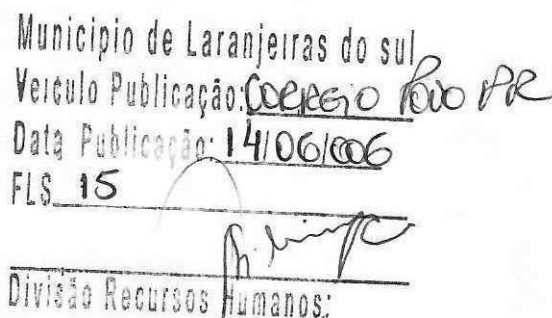 Municipio de Laranjeiras do sul
Veículo Publicação: CORREIO POVO PR
Data Publicação: 14/06/006
FLS 15
Divisão Recursos Humanos: